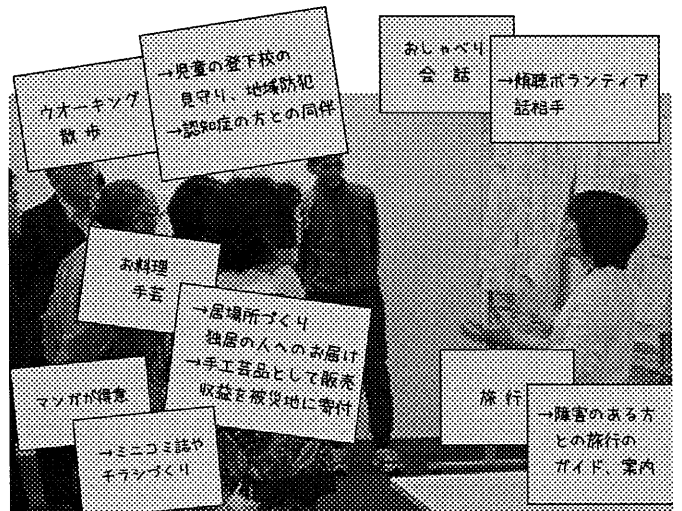 ウオーキング
散歩
→児童の登下校の
見守り、地域防犯
→認知症の方との同伴
おしゃべり
会話
→傾聴ボランティア
話相手
お料理
手芸
→居場所づくり
独居の人へのお届け
→手工芸品として販売
収益を被災地に寄付
マンガが得意
→ミニコミ誌や
チラシづくり
旅行
→障害のある方
との旅行の
ガイド、案内